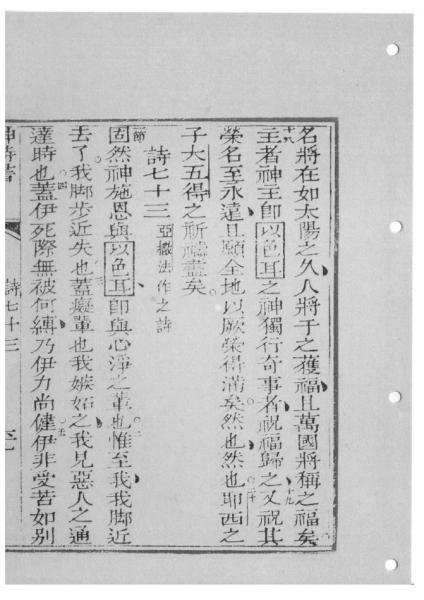 名將在如太陽之久人將于之獲福且萬國將稱之福矣
十八主者神主即以色耳之神獨行奇事者祝福歸之十九又祝其
榮名至永遠且願全地以厥榮得滿矣然也然也二十耶西之
子大五得之祈禱盡矣
詩七十三 亞撒法作之詩
節固然神施恩與以色耳即與心淨之輩也二惟至我我脚近
去了我脚步近失也三蓋癡輩也我嫉妬之我見惡人之通
達時也四蓋伊死際無被何縛乃伊力尚健五伊非愛苦如別
神詩書
詩七十三